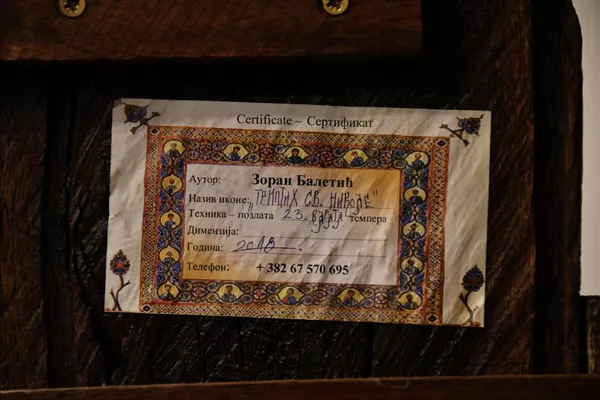 Certificate – Сертификат
Аутор: Зоран Балетић
Назив иконе: "ТРИПТИХ СВ. НИКОЛЕ"
Техника – позлата 23, темпера
Димензија:
Година: 2018.
Телефон: + 382 67 570 695